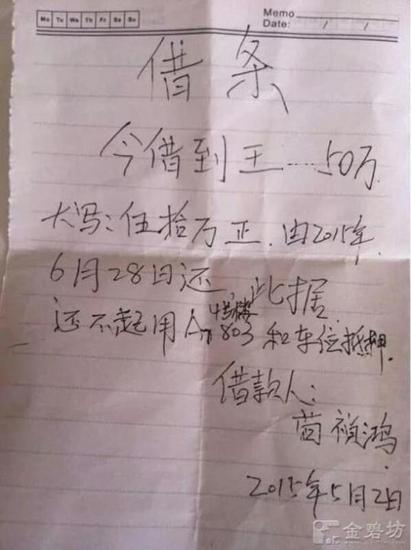 Mo Tu We Th Fr Sa Su
Memo
Date: / /
借条
今借到王....50万
大写:伍拾万正.由2015年
6月28日还,此据.
4号楼
还不起用A 803和车位抵押.
借款人:
苗祯鸿
2015年5月2日
金碧坊